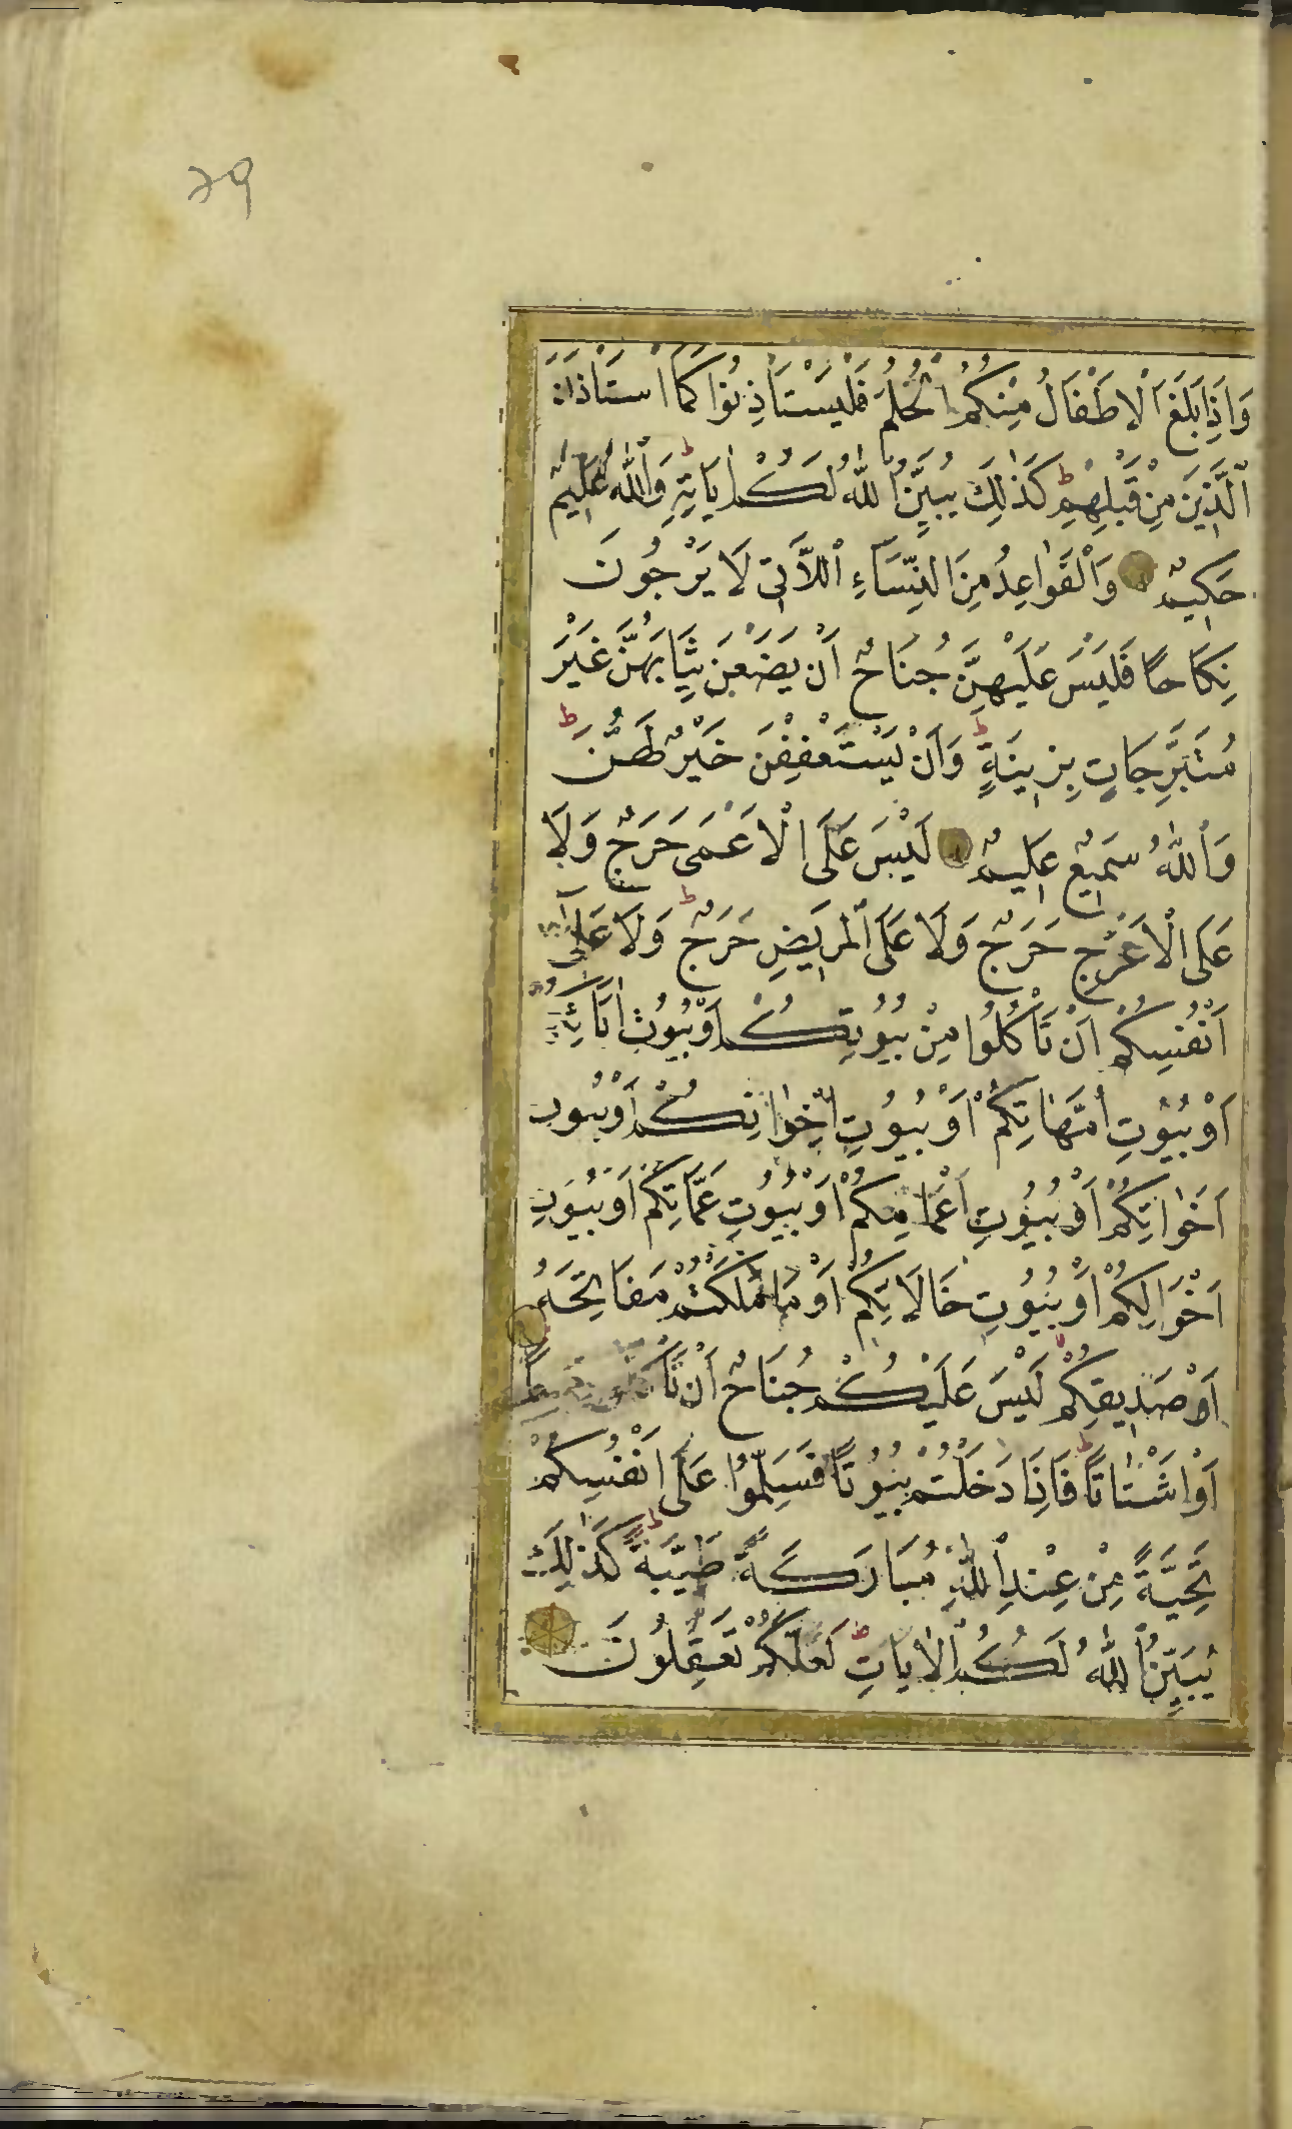 ٢٩
وَاِذَا بَلَغَ الْاَطْفَالُ مِنْكُمُ الْحُلُمَ فَلْيَسْتَاْذِنُوا كَمَا اسْتَاْذَنَ
الَّذِينَ مِنْ قَبْلِهِمْ ط كَذٰلِكَ يُبَيِّنُ اللّٰهُ لَكُمْ اٰيَاتِهِ وَاللّٰهُ عَلِيمٌ
حَكِيمٌ وَالْقَوَاعِدُ مِنَ النِّسَاءِ اللَّاتِى لَا يَرْجُونَ
نِكَاحًا فَلَيْسَ عَلَيْهِنَّ جُنَاحٌ اَنْ يَضَعْنَ ثِيَابَهُنَّ غَيْرَ
مُتَبَرِّجَاتٍ بِزِينَةٍ ط وَاَنْ يَسْتَعْفِفْنَ خَيْرٌ لَهُنَّ ط
وَاللّٰهُ سَمِيعٌ عَلِيمٌ لَيْسَ عَلَى الْاَعْمَى حَرَجٌ وَلَا
عَلَى الْاَعْرَجِ حَرَجٌ وَلَا عَلَى الْمَرِيضِ حَرَجٌ ط وَلَا عَلٰٓى
اَنْفُسِكُمْ اَنْ تَاْكُلُوا مِنْ بُيُوتِكُمْ اَوْ بُيُوتِ اٰبَائِكُمْ
اَوْ بُيُوتِ اُمَّهَاتِكُمْ اَوْ بُيُوتِ اِخْوَانِكُمْ اَوْ بُيُوتِ
اَخَوَاتِكُمْ اَوْ بُيُوتِ اَعْمَامِكُمْ اَوْ بُيُوتِ عَمَّاتِكُمْ اَوْ بُيُوتِ
اَخْوَالِكُمْ اَوْ بُيُوتِ خَالَاتِكُمْ اَوْ مَا مَلَكْتُمْ مَفَاتِحَهُ
اَوْ صَدِيقِكُمْ ط لَيْسَ عَلَيْكُمْ جُنَاحٌ اَنْ تَاْكُلُوا جَمِيعًا
اَوْ اَشْتَاتًا ط فَاِذَا دَخَلْتُمْ بُيُوتًا فَسَلِّمُوا عَلٰٓى اَنْفُسِكُمْ
تَحِيَّةً مِنْ عِنْدِ اللّٰهِ مُبَارَكَةً طَيِّبَةً ط كَذٰلِكَ
يُبَيِّنُ اللّٰهُ لَكُمُ الْاٰيَاتِ ط لَعَلَّكُمْ تَعْقِلُونَ